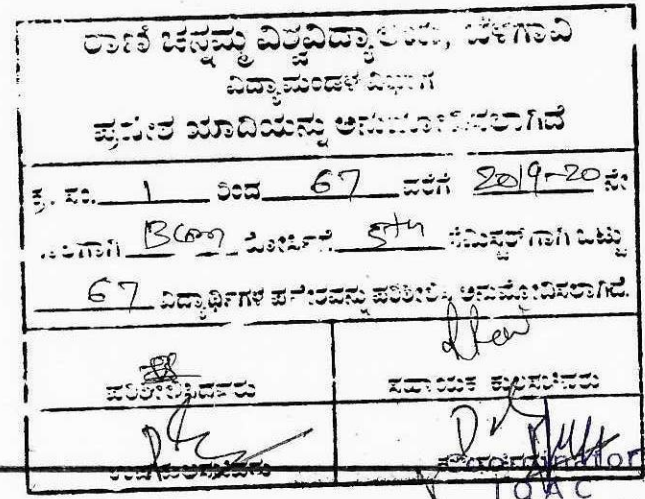 ರಾಣಿ ಚನ್ನಮ್ಮ ವಿಶ್ವವಿದ್ಯಾಲಯ, ಬೆಳಗಾವಿ
ವಿದ್ಯಾಮಂಡಳ ವಿಭಾಗ
ಪ್ರವೇಶ ಯಾದಿಯನ್ನು ಅನುಮೋದಿಸಲಾಗಿದೆ
ಕ್ರ. ಸಂ. 1 ರಿಂದ 67 ವರೆಗೆ 2019-20 ನೇ
Bcom ಕೋರ್ಸಿಗೆ 5th ಸೆಮಿಸ್ಟರ್ ಗಾಗಿ ಒಟ್ಟು
67 ವಿದ್ಯಾರ್ಥಿಗಳ ಪ್ರವೇಶವನ್ನು ಪರಿಶೀಲಿಸಿ ಅನುಮೋದಿಸಲಾಗಿದೆ.
ಪರಿಶೀಲಿಸಿದವರು ಸಹಾಯಕ ಕುಲಸಚಿವರು
ಉಪ ಕುಲಸಚಿವರು
IQAC